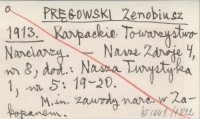 a
PRĘGOWSKI Zenobiusz
1913. Karpackie Towarzystwo
Narciarzy. – Nasze Zdroje 4,
nr 8, dod.: Nasza Turystyka
1, nr 5: 19–20.
M.in. zawody narc. w Za-
kopanem.